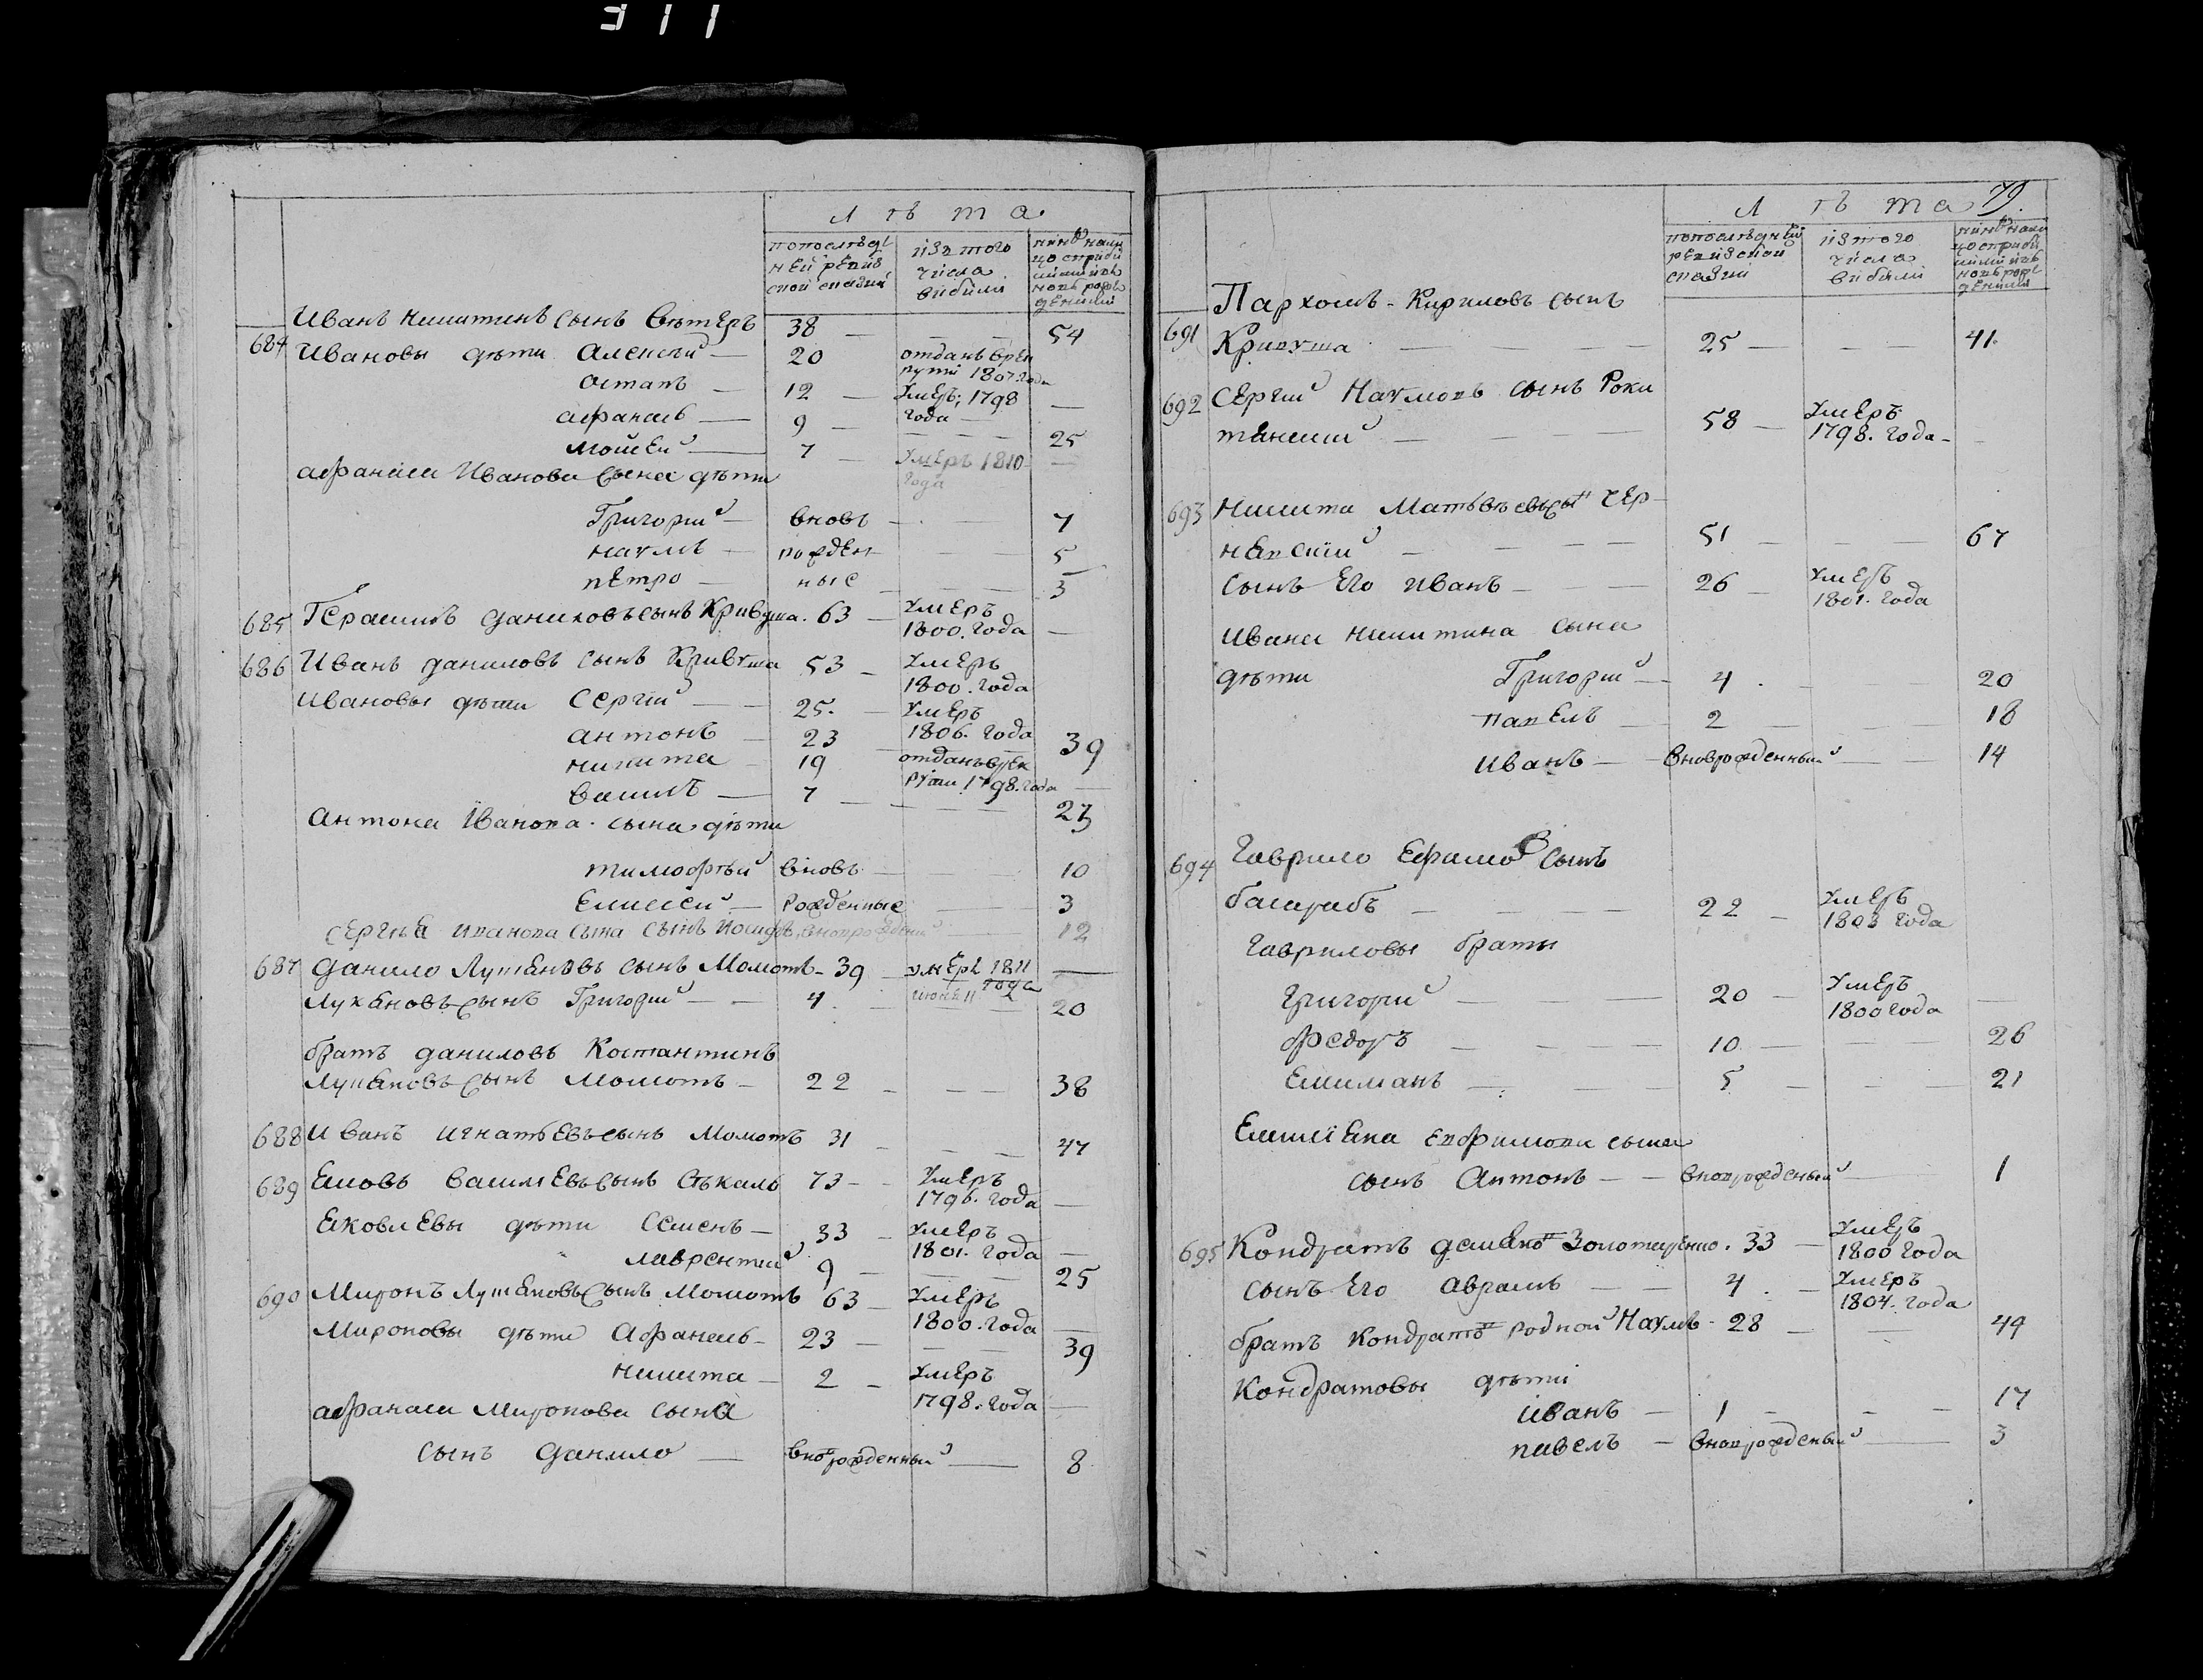 311
Л ѣ т а
попослѣд
ней ревиз
ской сказки
изъ того
числа
выбыли
684 Иванъ Никитинъ сынъ Вѣтеръ 38 — — — 54
Ивановы дѣти Алексѣй — 20 отданъ в рек
руты 1807 года
Остапъ — 12 — умеръ 1798
года —
Афанасъ — 9 — — — — 25
Мойсей — 7 — умеръ 1810
года
Афанасія Иванова сына дѣти
Григорий — вновь — — 7
Наумъ — рожден — — 5
Петро — ные — — 3
685 Герасимъ Даниловъ сынъ Кривуша. 63 — умеръ
1800. года —
686 Иванъ Даниловъ сынъ Кривуша 53 — умеръ
1800. года
Ивановы дѣти Сергій — 25. — умеръ
1806. года
Антонъ — 23 — — 39
Никита — 19 отданъ в рек
руты 1798. года —
Василь — 7 — — — — 23
Антона Иванова сына дѣти
Тимофѣй вновь — — 10
Елисей — рожденные — 3
Сергѣя Иванова сына сынъ вноврожденый — 12
687 Данило Лукяновъ сынъ Момотъ — 39 — умеръ 1811
года
Лукяновъ сынъ Григорий — — 4. — — — 20
братъ Даниловъ Костантинъ
Лукяновъ сынъ Момотъ — 22 — — — 38
688 Иванъ Игнатьевъ сынъ Момотъ 31 — — — 47
689 Яковъ Васильевъ сынъ 73 — умеръ
1796. года —
Яковлевы дѣти Семенъ — 33 — умеръ
1801. года —
Лаврентий 9 — — — 25
690 Миронъ Лукяновъ сынъ Момотъ 63 — умеръ
1800. года —
Мироновы дѣти Афанасъ — 23 — — — 39
Никита — 2 — умеръ
1798. года —
Афанасия Миронова сына
сынъ Данило — вноврожденный — 8
79.
Л ѣ т а
попослѣдней
ревизской
сказки
изъ того
числа
выбыли
Пархомъ Кириловъ сынъ
691 Кривуша — — — 25 — — — 41.
692 Сергій Наумовъ сынъ Роки
тянский — — — 58 — умеръ
1798. года —
693 Никита Матвѣевъ сынъ Чер
невский — — — 51 — — — 67
сынъ его Иванъ — — — 26 — умеръ
1801. года
Ивана Никитина сына
дѣти Григорий — 4. — — 20
Павелъ — 2 — — 18
Иванъ — вноврожденный — — 14
694 Гаврило Ефимовъ сынъ
Басарабъ — — — 22 — умеръ
1803 года
Гавриловы браты
Григорий — — 20 — умеръ
1800 года —
Федоръ — — — 10. — — 26
Емилианъ — — — 5 — — — 21
Ефимова сына
сынъ Антонъ — — вноврожденный — 1
695 Кондратъ Золотаренко. 33 — умеръ
1800 года
сынъ его Аврамъ — — 4. — умеръ
1804. года
братъ Кондратовъ родной Наумъ — 28 — — 44
Кондратовы дѣти
Иванъ — 1 — — — 17
Павелъ — вноврожденный — 3